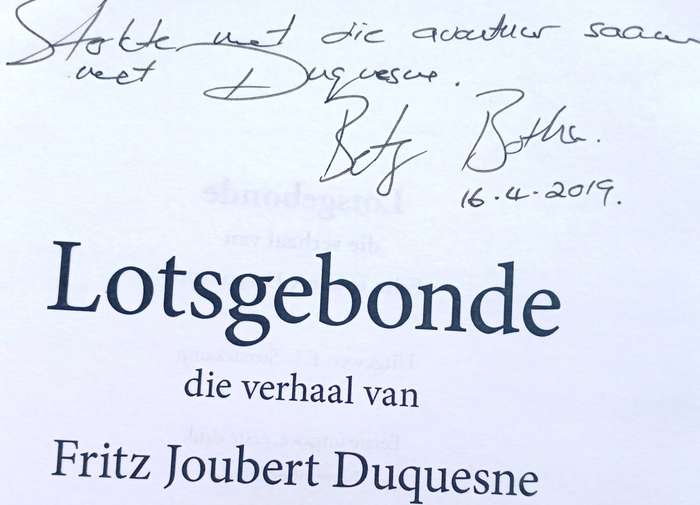 Sterkte met die avontuur saam
met Duquesne.
Botha.
16.4.2019.
Lotsgebonde
die verhaal van
Fritz Joubert Duquesne